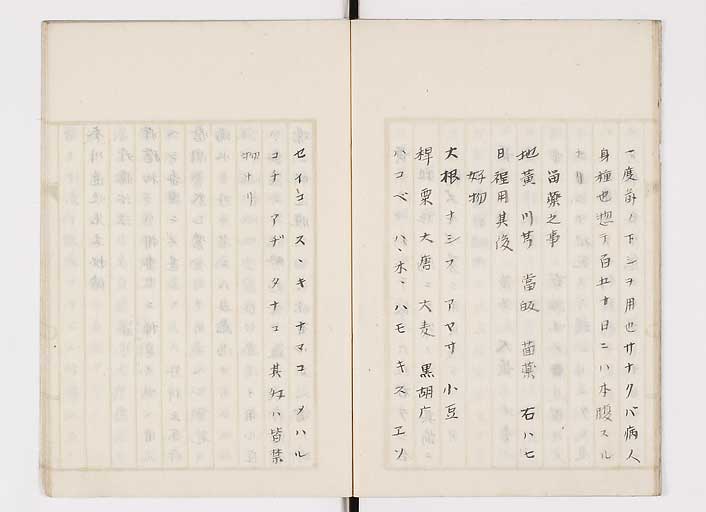 一度前ノ下シヲ用也サナクバ病人
身種也惣テ百五十日ニハ本腹スル
ナリ
苗薬之事
地黄 川芎 當皈 茴薬 右ハ七
日程用其後
好物
大根 ナシフ アヤサ 小豆
稗 粟 大唐 大麦 黒胡广
ハコベ ハホ ハモ キス ヱソ
セイゴ スヽキ ナマコ メハル
コチ アヂ タナコ 其外ハ皆禁
物ナリ